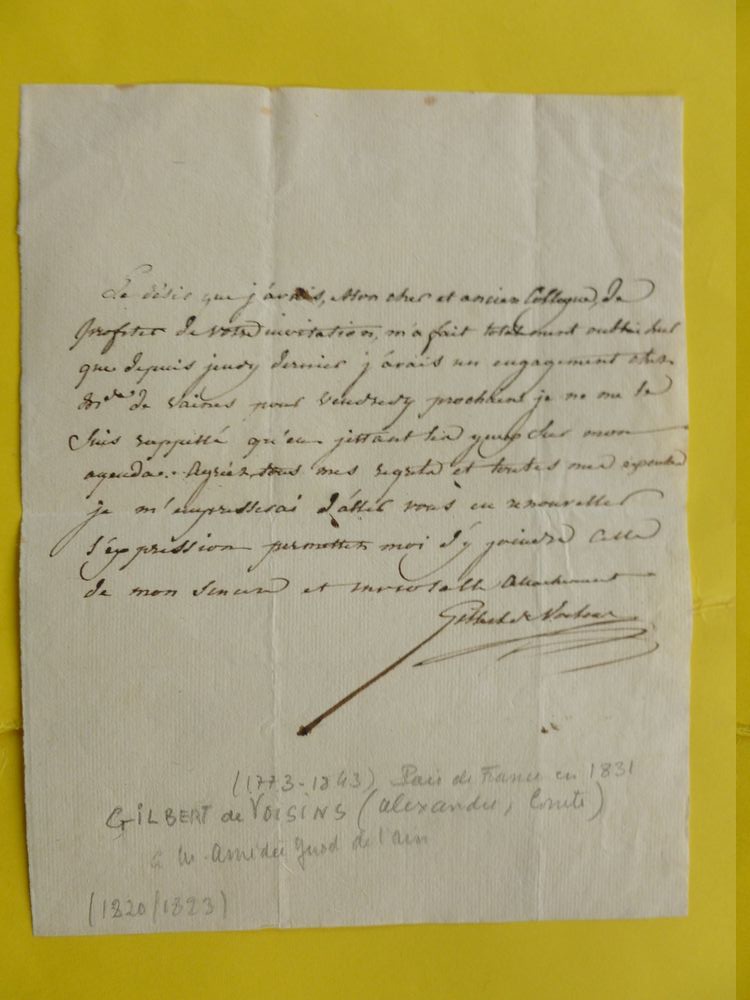 Le désir que j'avais, Mon cher et ancien Collegue, de
profiter de votre invitation, m'a fait totalement oublier
que depuis jeudy dernier j'avais un engagement chez
Mde de Vaines pour vendredy prochain je ne me le
suis rappellé qu'en jettant les yeux sur mon
agenda. Agréez tous mes regrets et toutes mes excuses
je m'empresserai d'aller vous en renouveller
l'expression permettez moi d'y joindre celle
de mon sincere et inviolable attachement
Gilbert de Voisins
(1773-1843) Pair de France en 1831
GILBERT de VOISINS (Alexandre, Comte)
à M. Amédée Girod de l'Ain
(1820/1823)